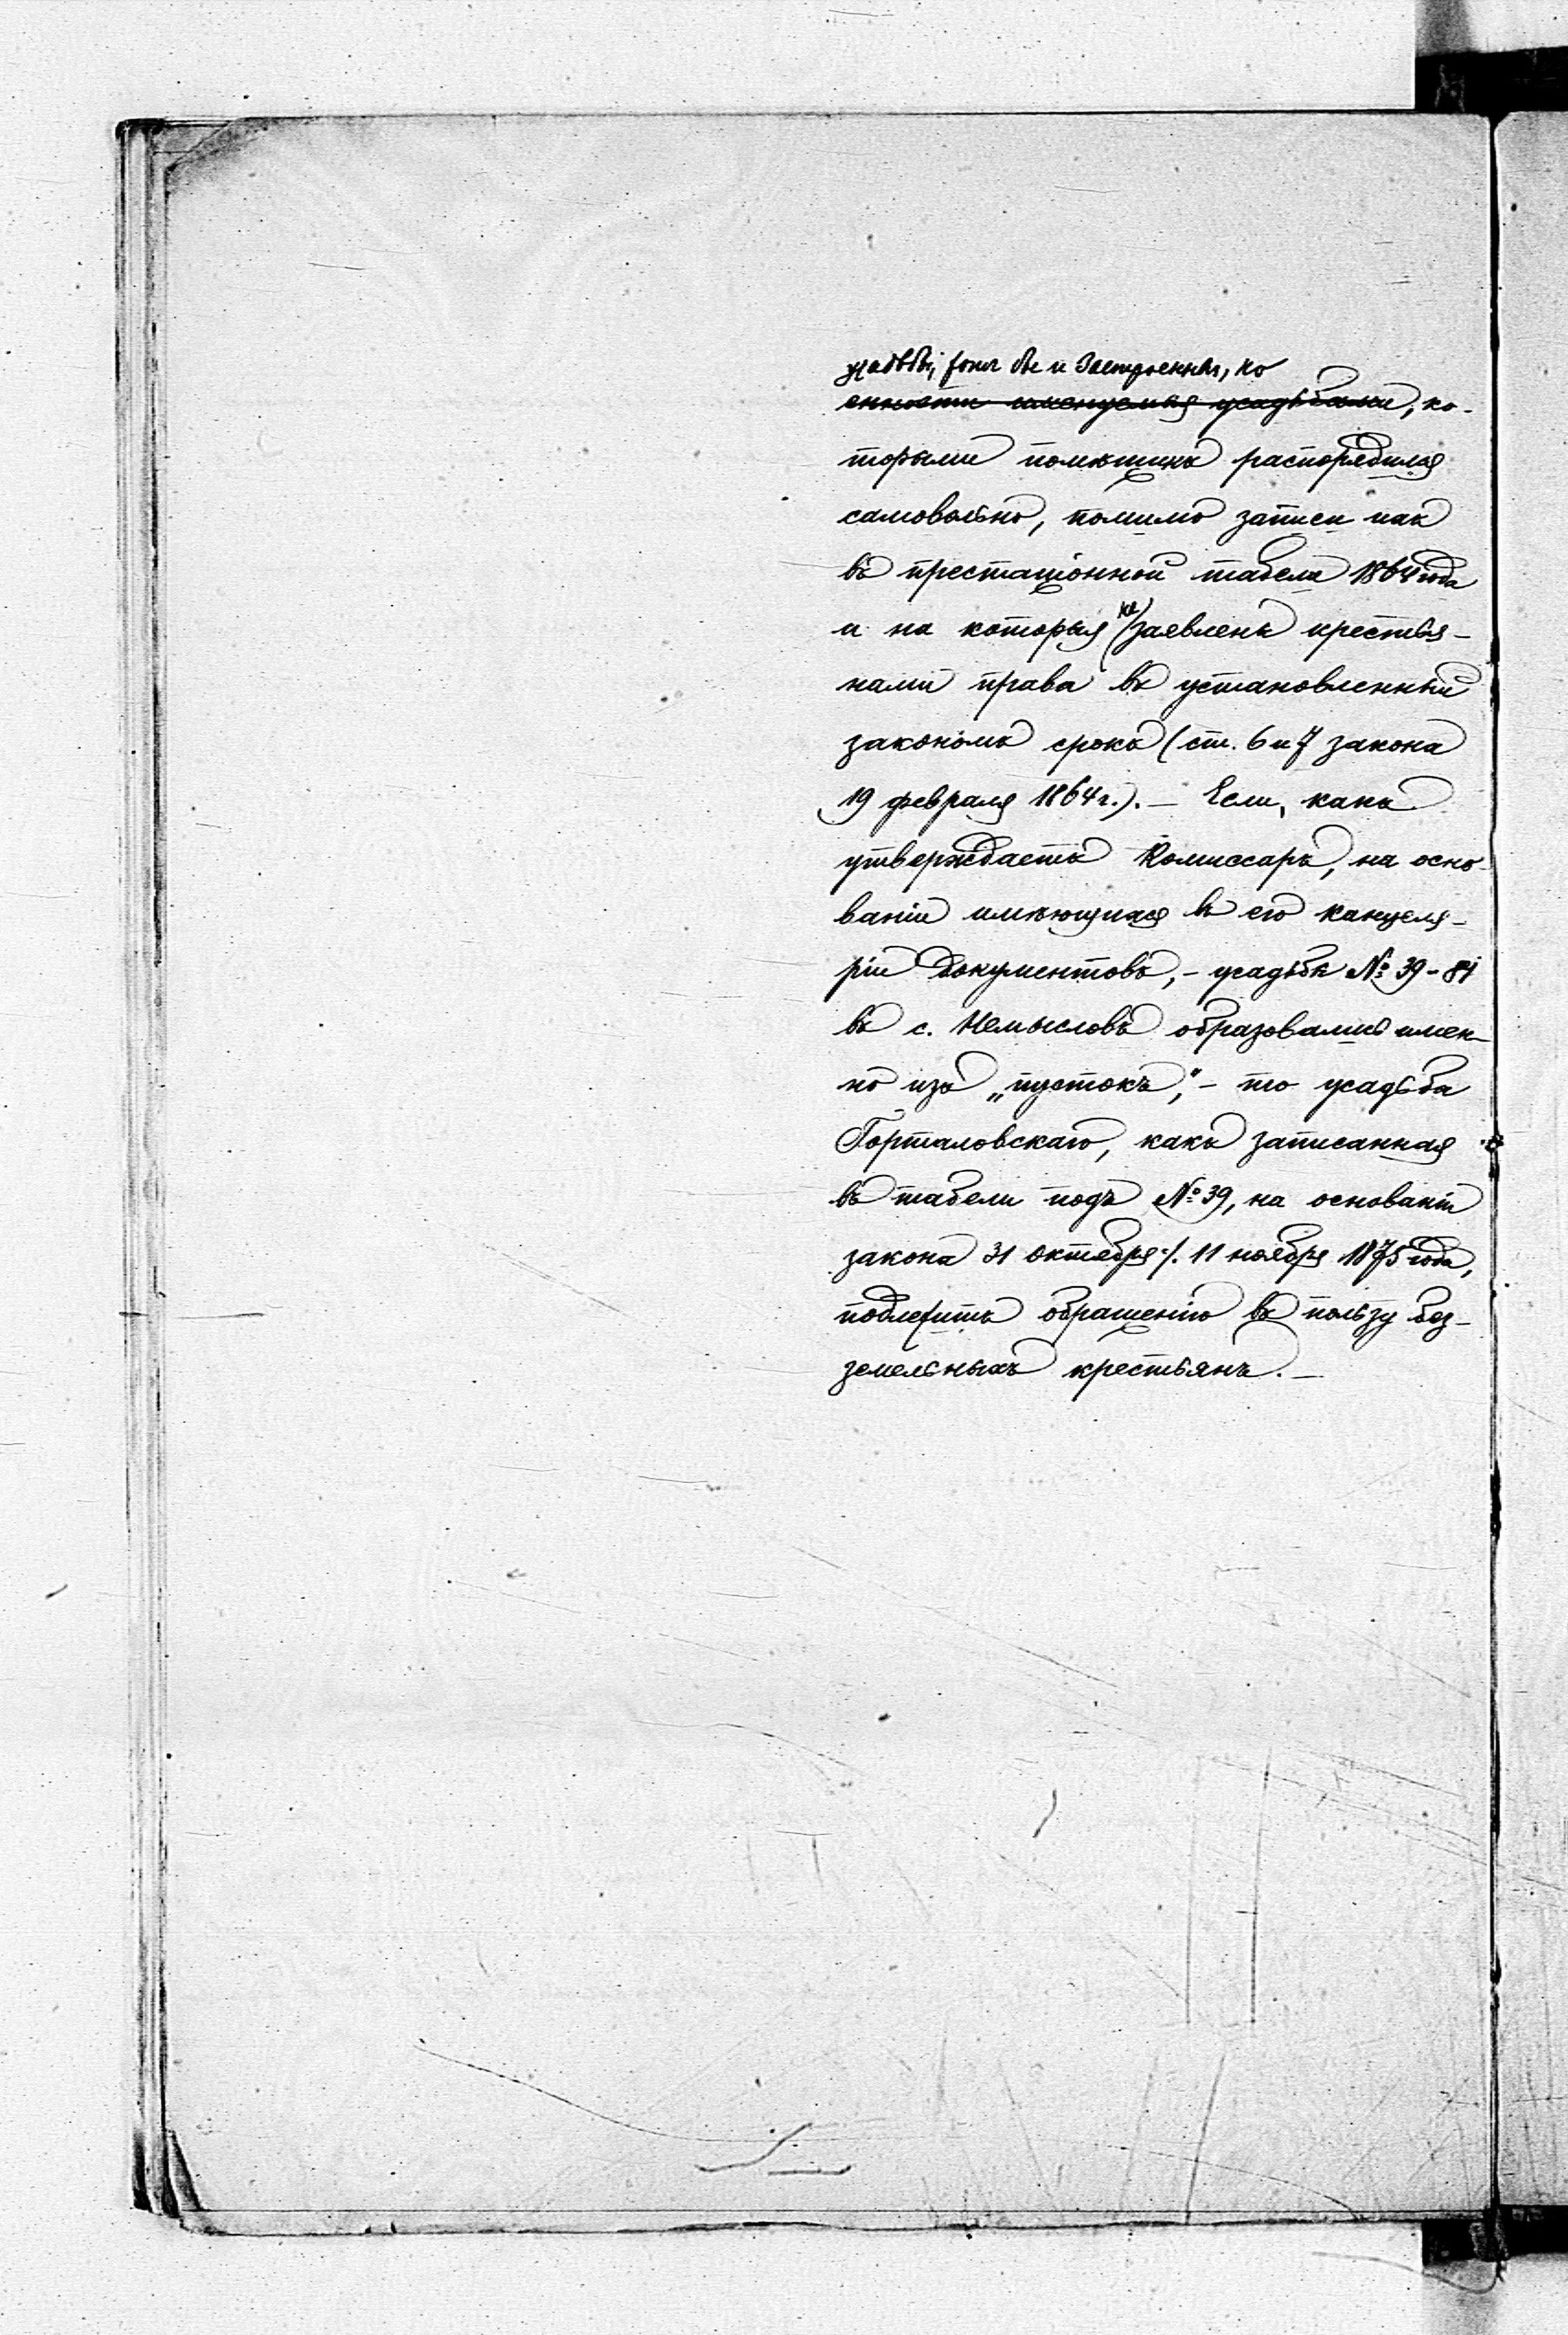 усадьбы, хотя бы и застроенныя, но
енности именуемыя усадьбами, ко-
торыми помѣщикъ распорядился
самовольно, помимо записи ихъ
въ престаціонной табели 1864 года
и на которыя не заявлены крестья-
нами права въ установленный
закономъ срокъ (ст. 6 и 7 закона
19 февраля 1864 г.). — Если, какъ
утверждаетъ Комиссаръ, на осно-
ваніи имѣющихся въ его канцеля-
ріи документовъ, - усадьбы № 39-81
въ с. Немысловъ образовались имен-
но изъ „пустокъ", - то усадьба
Горталовскаго, какъ записанная
въ табели подъ № 39, на основаніи
закона 31 октября ·/. 11 ноября 1875 года,
подлежитъ обращенію въ пользу без-
земельныхъ крестьянъ. —